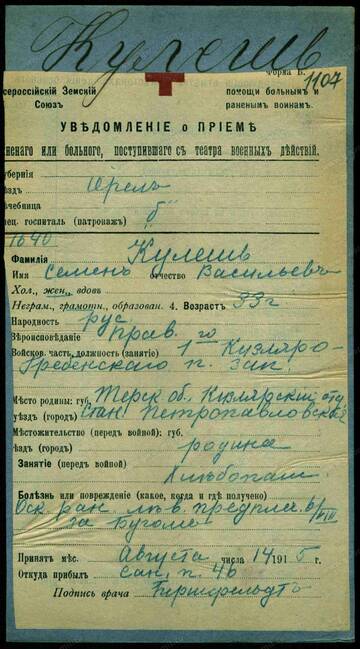 Кулешъ
Форма Б.
1107
сероссійскій Земскій
Союзъ
помощи больнымъ и
раненымъ воинамъ.
УВѢДОМЛЕНІЕ о ПРІЕМѢ
ненаго или больного, поступившаго съ театра военныхъ дѣйствій.
убернія
ѣздъ Орелъ
ечебница
пец. госпиталь (патронажъ) "б"
1640
Фамилія Кулешъ
Имя Семенъ отчество Васильевъ
Хол., жен., вдовъ
Неграм., грамотн., образован. 4. Возрастъ 33 г
Народность рус
Вѣроисповѣданіе прав.
Войсков. часть, должность (занятіе) 1го Кизляро-
Гребенскаго п. каз.
Мѣсто родины: губ. Терск об. Кизлярский отд
уѣздъ (городъ) Стан. Петропавловской
Мѣстожительство (передъ войной): губ.
ѣздъ (городъ) родина
Занятіе (передъ войной)
Хлѣбопаш.
Болѣзнь или поврежденіе (какое, когда и гдѣ получено)
Оск. ран. лѣв. предпл. 6/VIII
за Бугомъ
Принятъ мѣс. Августа числа 14 1915 г.
Откуда прибылъ сан. п. 46
Подпись врача